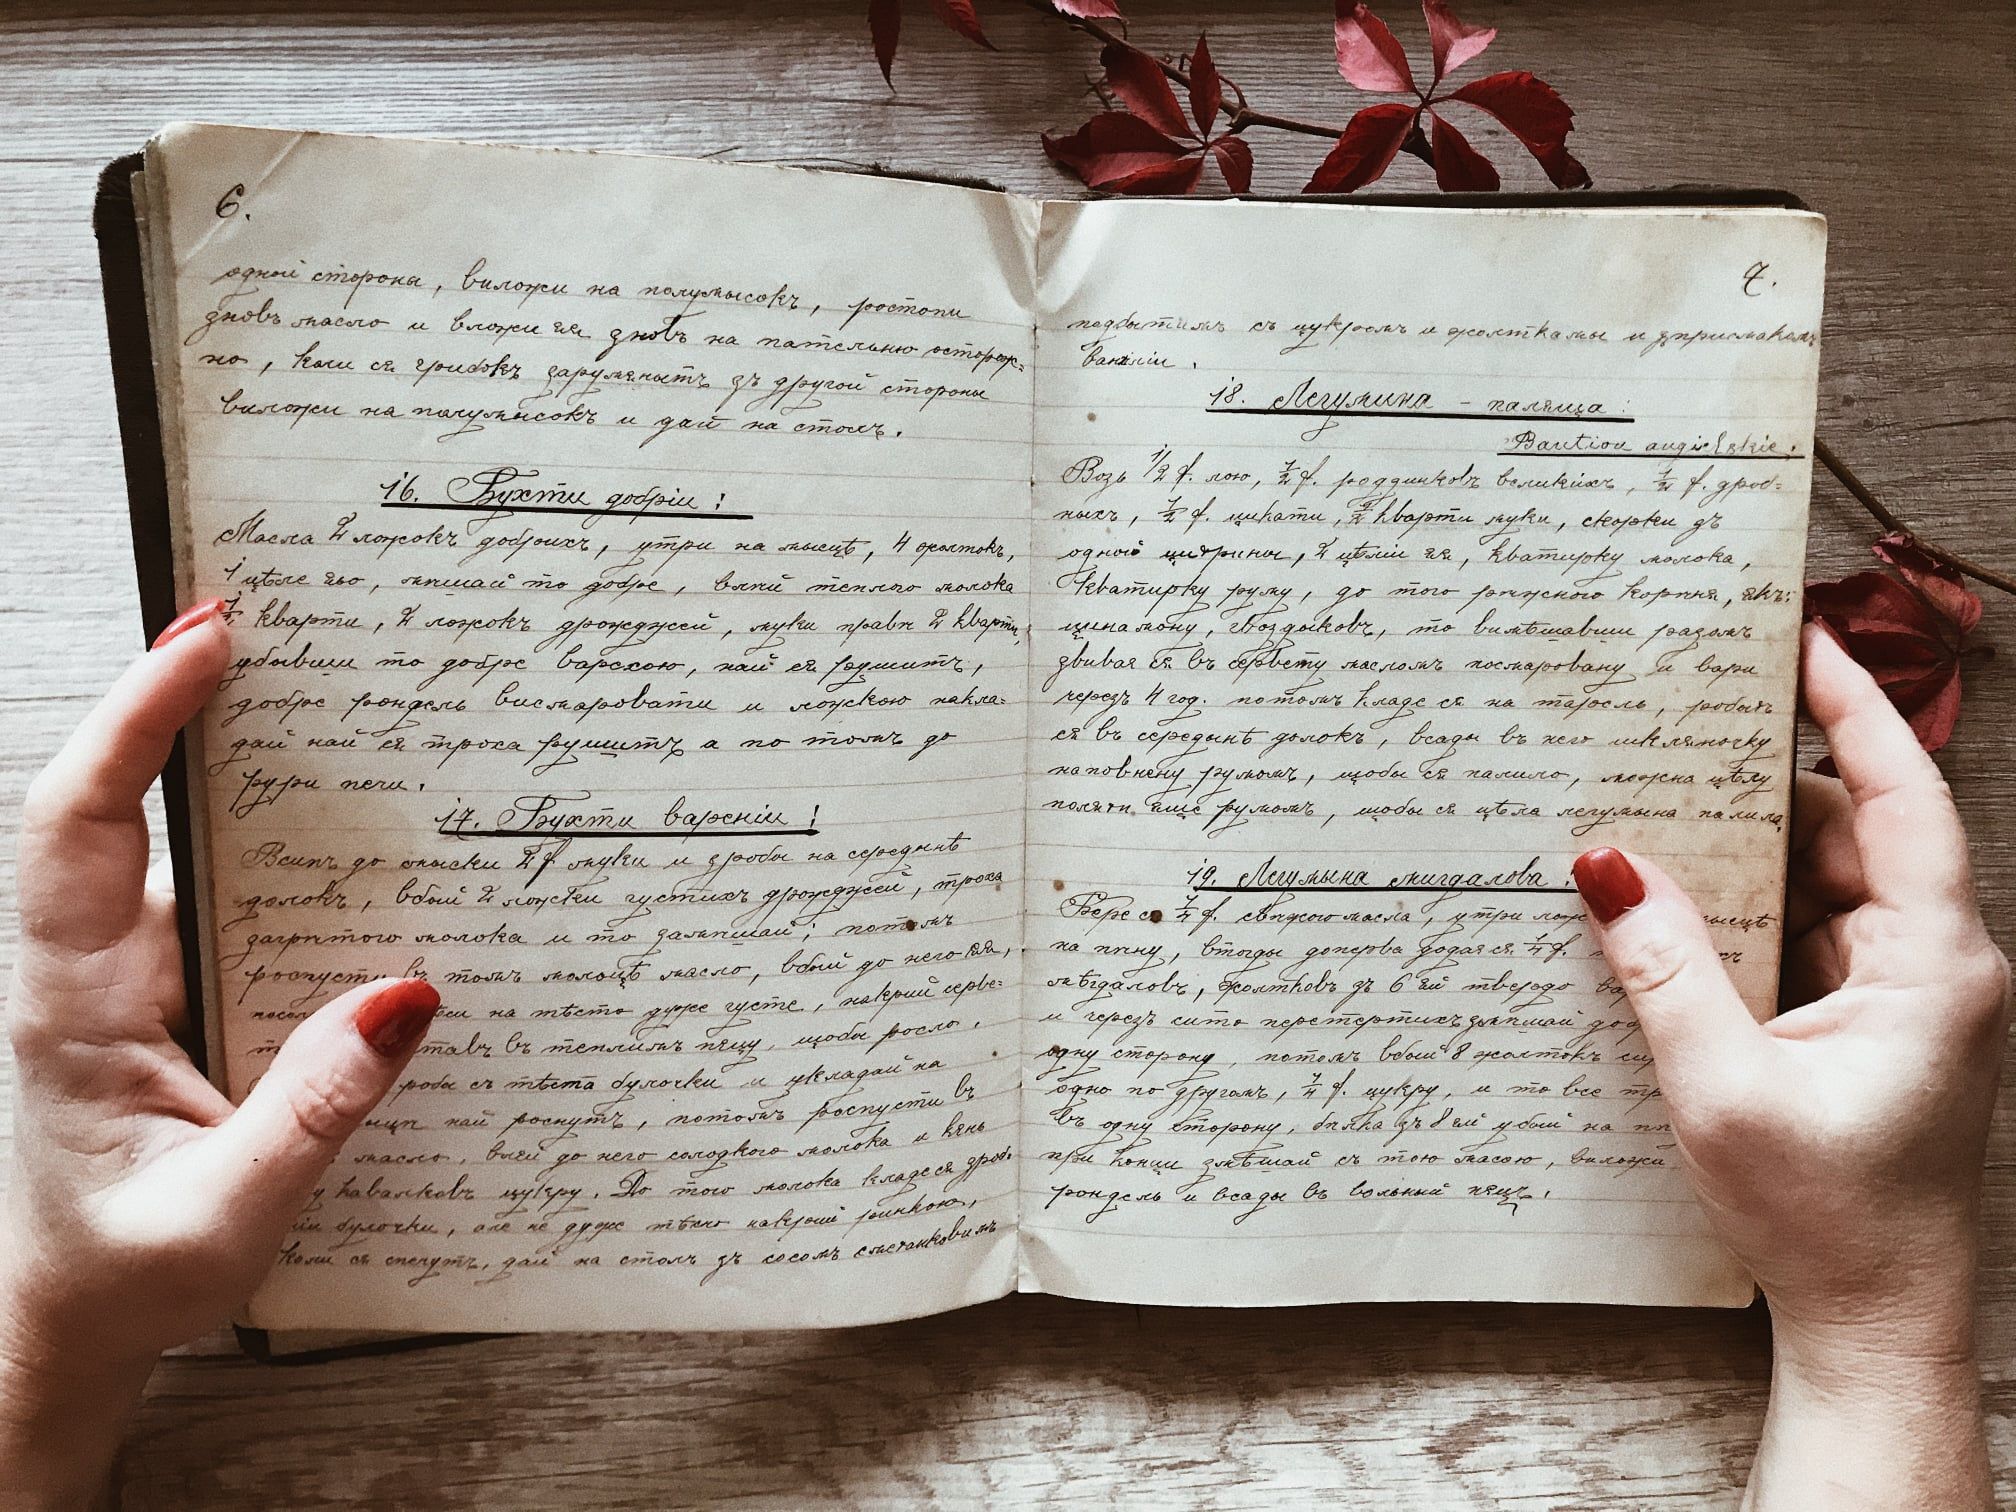 6.
одной стороны, виложи на полумысокъ, ростопи
зновъ масло и вложи єи зновъ на пательню осторож=
но, коли ся грибокъ зарумянитъ зъ другой стороны
виложи на полумысокъ и дай на столъ.
16. Бухти добріи!
Масла 2 ложокъ добрихъ, утри на мысцѣ, 4 жолтокъ,
1 цѣле яйо, мішай то добре, влий теплого молока
1/2 кварти, 2 ложокъ дрожджей, муки правѣ 2 кварти,
убывши то добре варехою, най ся рушитъ,
добре рондель висмаровати и ложкою накла=
дай най ся троха рушитъ а по томъ до
рури печи.
17. Бухти вареніи!
Всипъ до мыски 2 f муки и зробы на серединѣ
долокъ, вбый 2 ложки густихъ дрожджей, троха
загрѣтого молока и то замішай; потомъ
роспусти въ томъ молоцѣ масло, вбый до него яя,
на тѣсто дуже густе, накрий серве=
въ теплимъ пецу, щобы росло,
робы съ тѣста булочки и укладай на
най роснутъ, потомъ роспусти въ
масло, влей до него солодкого молока и кинь
кавалковъ цукру. До того молока кладеся зроб.
булочки, але не дуже тѣсно накрий ринкою,
коли ся спечутъ, дай на столъ зъ сосомъ сметанковимъ
7.
подбытимъ съ цукромъ и жолтками и зприсмакомъ
ваніліи.
18. Легумина - паляща:
Baution angielskie.
Возь 1/2 f. лою, 1/2 f. роддинковъ великихъ, 1/2 f. дроб=
ныхъ, 1/2 f. цикати, 1/2 кварти муки, скорки зъ
одной цитрины, 2 цѣліи яя, кватирку молока,
кватирку руму, до того ріжного коріня, якъ:
цинамону, гвоздыковъ, то вимѣшавши разомъ
звивая ся въ сервету масломъ посмаровану и вари
черезъ 4 год. потомъ кладе ся на таросль, робытъ
ся въ серединѣ долокъ, всады въ него шкляночку
наповнену румомъ, щобы ся палило, можна цѣлу
поляти яще румомъ, щобы ся цѣла легумына палила.
19. Легумына мигдалова:
Бере ся 1/4 f. свѣжого масла, утри
на піну, втогды доперва додая ся 1/4 f.
мѣгдаловъ, жолтковъ зъ 6 яй твердо
и черезъ сито перетертихъ замішай
одну сторону, потомъ вбый 8 жолтокъ
одно по другомъ, 1/4 f. цукру, и то все
въ одну сторону, білка зъ 8 яй убый на
при конци змѣшай съ тою масою, виложи
рондель и всады въ вольный пецъ.